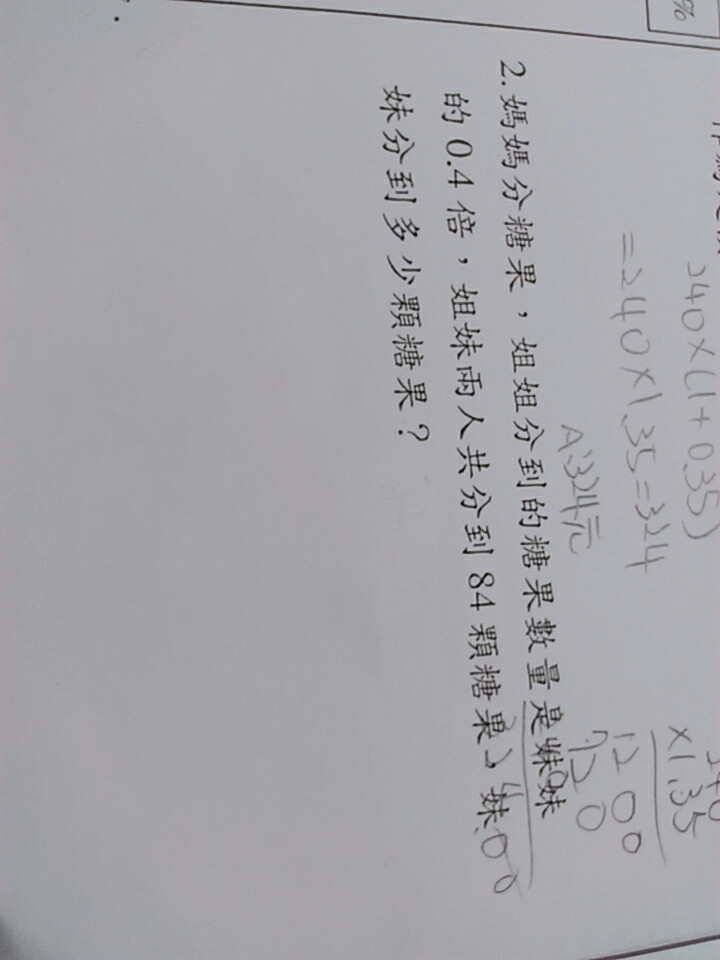 %
240×(1+0.35)
=240×1.35=324
A:324元
×1.35
1200
720
2.媽媽分糖果，姐姐分到的糖果數量是妹妹
的0.4倍，姐妹兩人共分到84顆糖果，妹
妹分到多少顆糖果？